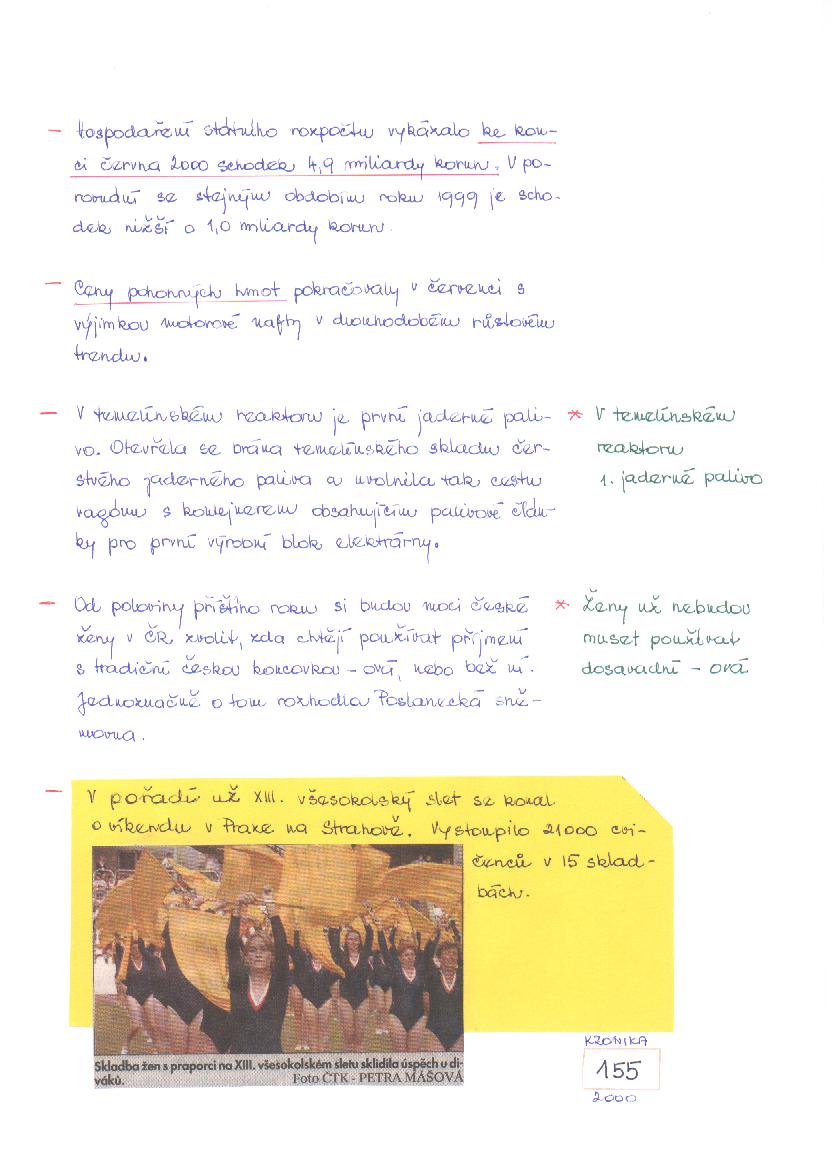 - Hospodaření státního rozpočtu vykázalo ke kon-
ci června 2000 schodek 4,9 miliardy korun. V po-
rovnání se stejným obdobím roku 1999 je scho-
dek nižší o 1,0 miliardy korun.
- Ceny pohonných hmot pokračovaly v červenci s
výjimkou motorové nafty v dlouhodobém růstovém
trendu.
- V temelínském reaktoru je první jaderné pali-
vo. Otevřela se brána temelínského skladu čer-
stvého jaderného paliva a uvolnila tak cestu
vagónu s kontejnerem obsahujícím palivové člán-
ky pro první výrobní blok elektrárny.
* V temelínském
reaktoru
1. jaderné palivo
- Od poloviny příštího roku si budou moci české
ženy v ČR zvolit, zda chtějí používat příjmení
s tradiční českou koncovkou - ová, nebo bež ní.
Jednoznačně o tom rozhodla Poslanecká sně-
movna.
* Ženy už nebudou
muset používat
dosavadní - ová
- V pořadí už XIII. všesokolský slet se konal
o víkendu v Praze na Strahově. Vystoupilo 21000 cvi-
čenců v 15 sklad-
bách.
Skladba žen s praporci na XIII. všesokolském sletu sklidila úspěch u di-
váků. Foto ČTK - PETRA MÁŠOVÁ
KRONIKA
155
2000